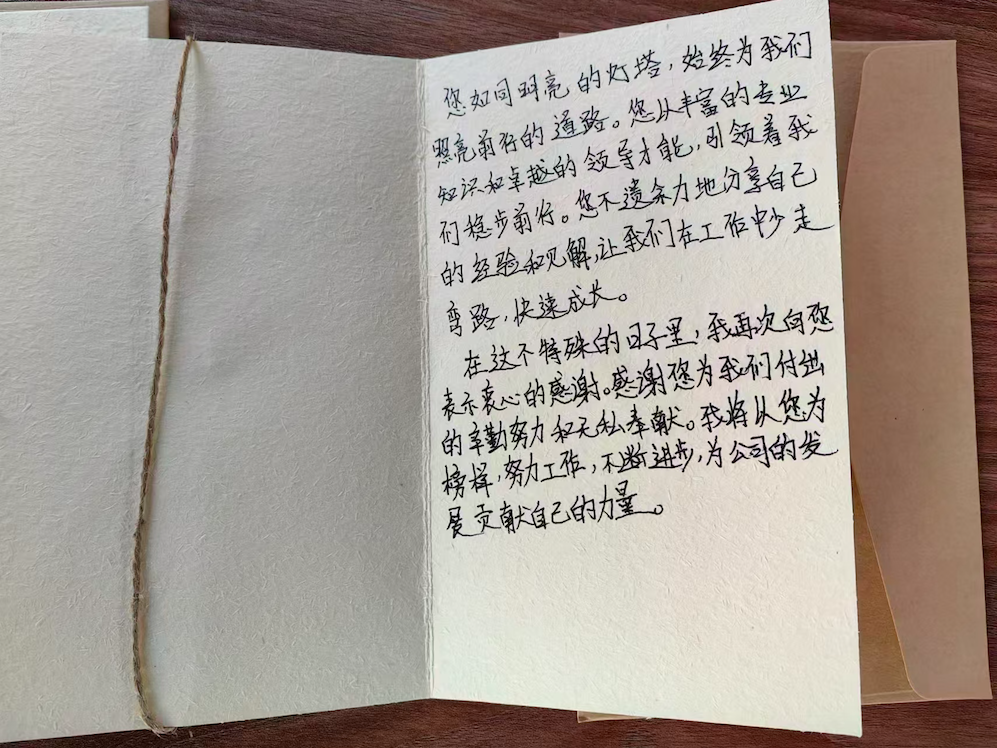 您如同明亮的灯塔,始终为我们
照亮前行的道路。您以丰富的专业
知识和卓越的领导才能,引领着我
们稳步前行。您不遗余力地分享自己
的经验和见解,让我们在工作中少走
弯路,快速成长。
在这个特殊的日子里,我再次向您
表示衷心的感谢。感谢您为我们付出
的辛勤努力和无私奉献。我将以您为
榜样,努力工作,不断进步,为公司的发
展贡献自己的力量。